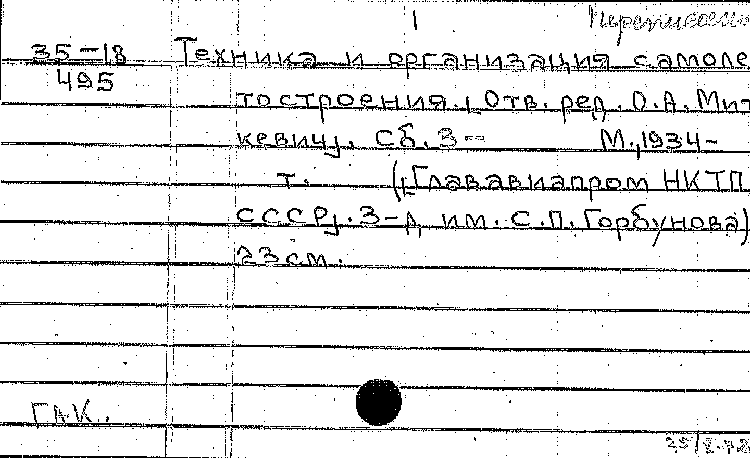 1
35-18
495
Техника и организация самоле
тостроения. [Отв. ред. О.А. Мит
кевич]. Сб. 3-- М., 1934-
т. ([Глававиапром НКТП
СССР]. З-д им. С.П. Горбунова)
23 см.
ГАК.